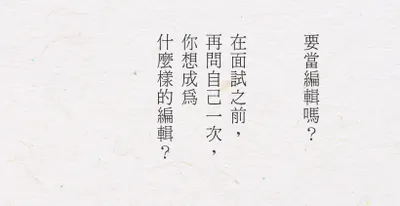 要當編輯嗎？
在面試之前，
再問自己一次，
你想成為
什麼樣的編輯？